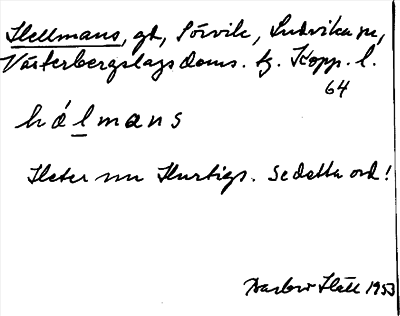 Hellmans, gd, Sörvik, Ludvika sn,
Västerbergslags doms. tg. Kopp. l.
64
hálmans
Heter nu Hurtigs. Se detta ord!
Hätt 1953